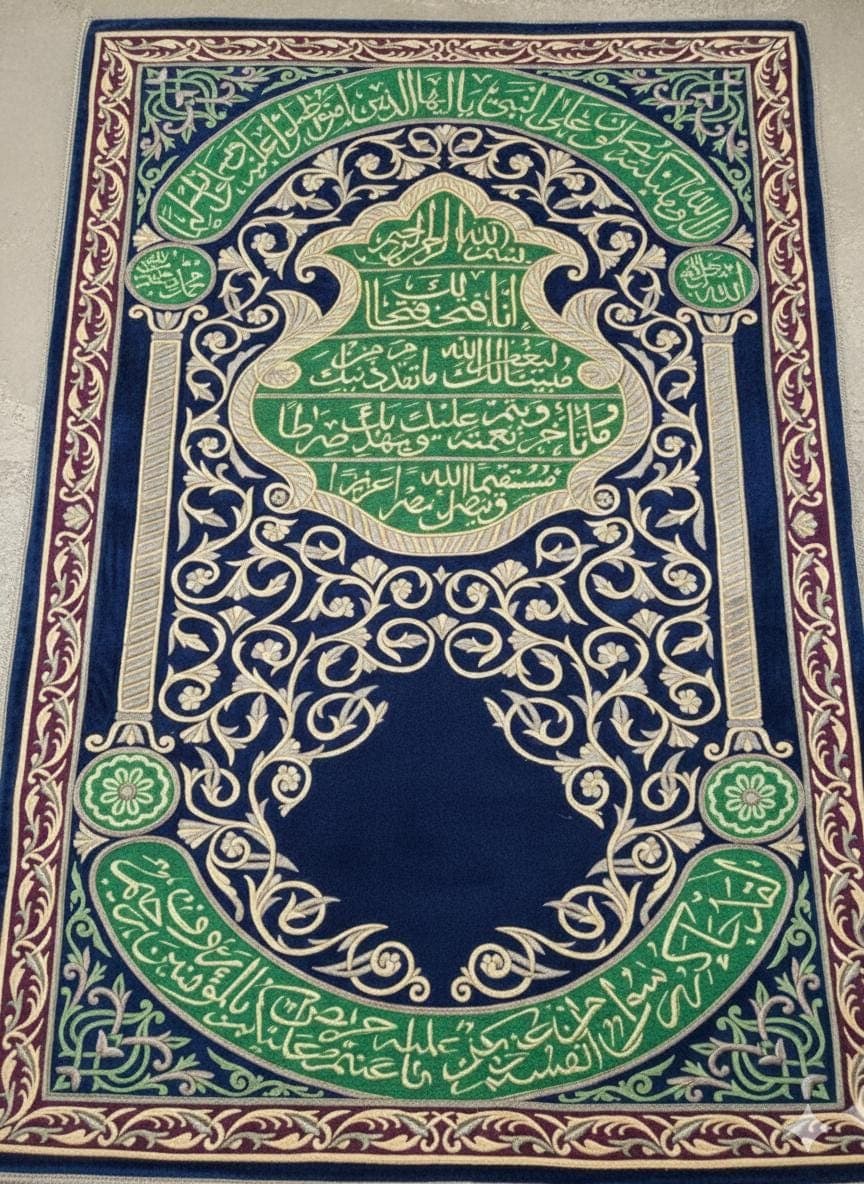 الله وملائكته يصلون على النبي يا ايها الذين امنوا صلوا عليه
الله جل جلاله
محمد
بسم الله الرحمن الرحيم
انا فتحنا لك فتحا
مبينا ليغفر لك الله ما تقدم من ذنبك
وما تأخر ويتم نعمته عليك ويهديك صراطا
مستقيما وينصرك الله نصرا عزيزا
لقد جاءكم رسول من انفسكم عزيز عليه ما عنتم حريص عليكم بالمؤمنين رؤوف رحيم